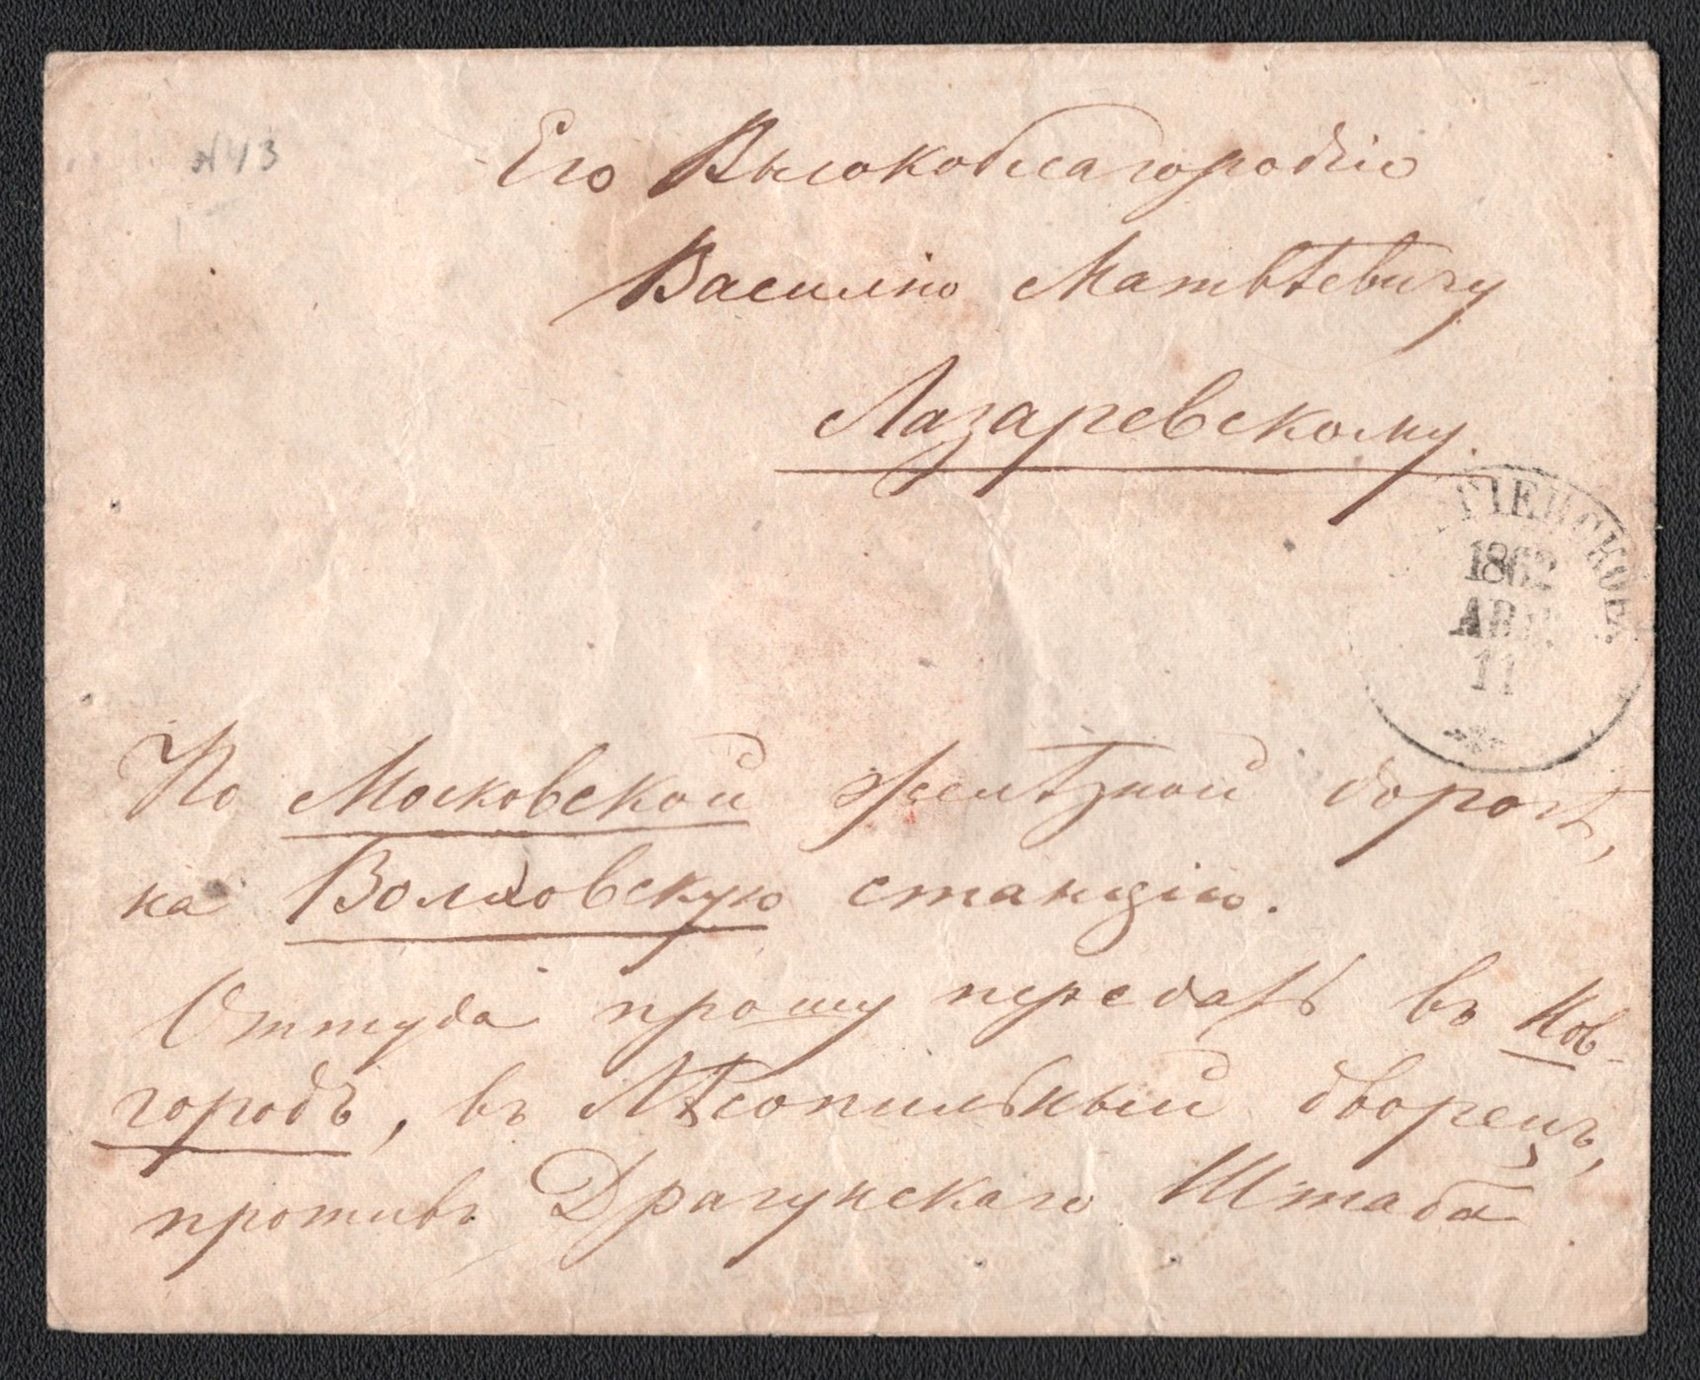 N 43
Его Высокоблагородію
Василію Матвѣевичу
Лазаревскому.
ГІЕВСКОЕ.
1862
АВГ.
11
По Московской желѣзной дорогѣ,
на Волховскую станцію.
Оттуда прошу передать въ Нов-
городъ, въ Лѣсопильный дворецъ,
противъ Драгунскаго Штаба